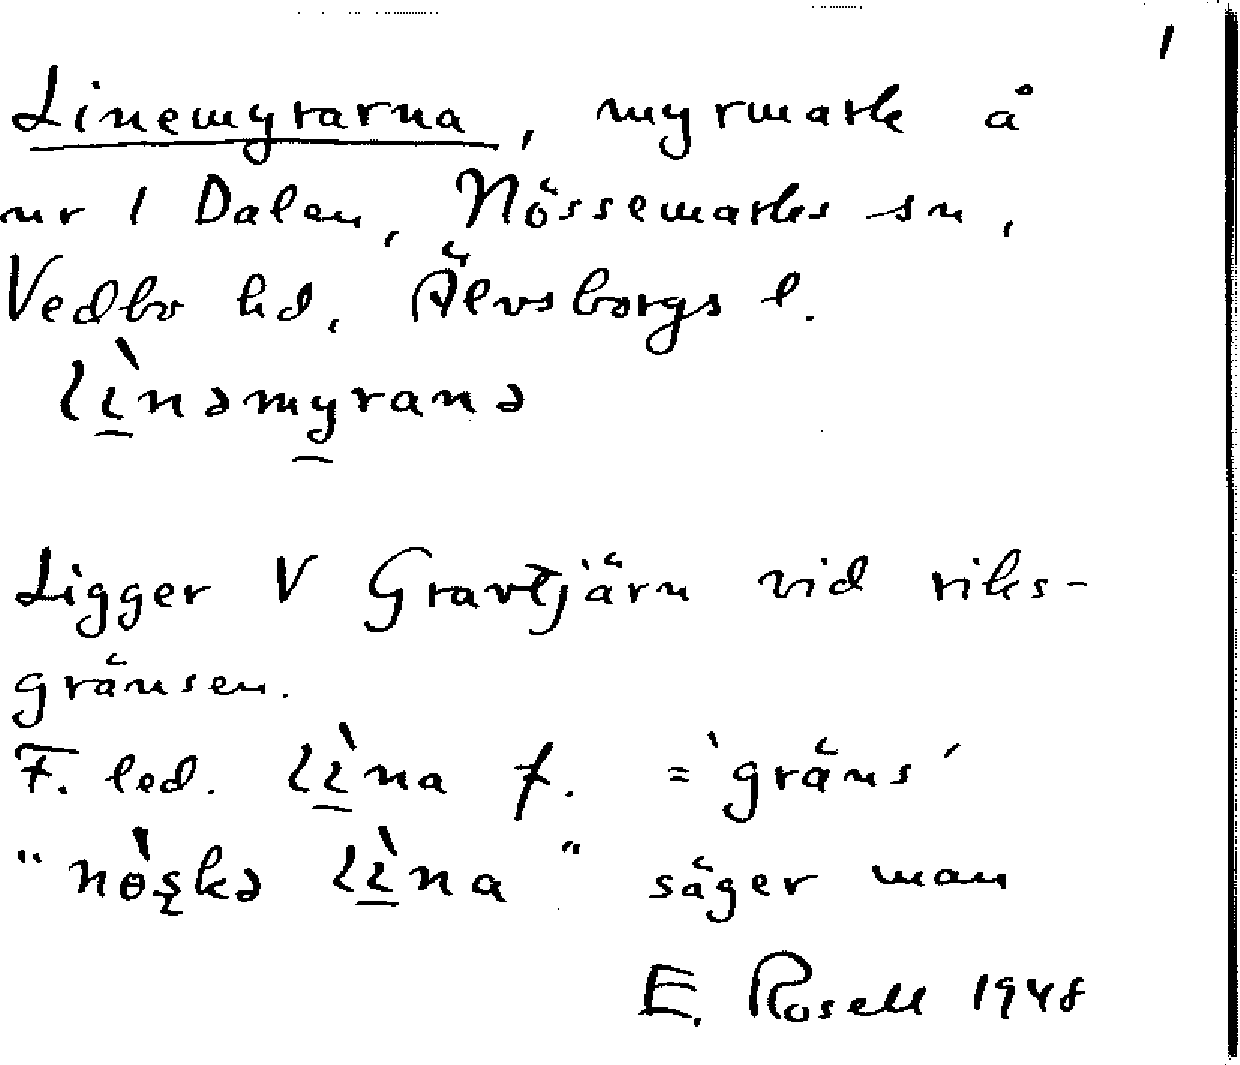 1
Linemyrarna, myrmark å
nr 1 Dalen, Nössemarks sn,
Vedbo hd, Älvsborgs l.
lı̱̀nəmy̱ranə
Ligger V Gravtjärn vid riks-
gränsen.
F. led. lı̱̀na f. = 'gräns'
"nɵ̀s̨kə lı̱̀na" säger man
E. Rosell 1948